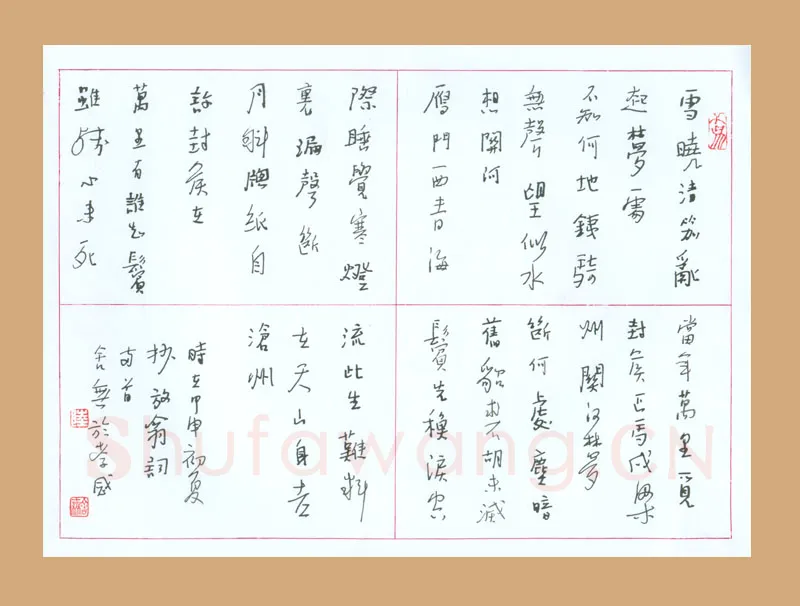 雪曉清笳亂
起夢
不知何地鐵騎
無聲望似水
想關河
雁門西青海
際睡覺寒燈
裏漏聲斷
月斜牕紙自
許封侯在
萬里有誰知鬢
雖殘心未死
當年萬里覓
封侯匹馬戍梁
州關河夢
斷何處塵暗
舊貂裘胡未滅
鬢先秋淚空
流此生難料
在天山身老
滄州
時在甲申初夏
抄放翁詞
两首
舍無於孝感
Shufawang.CN